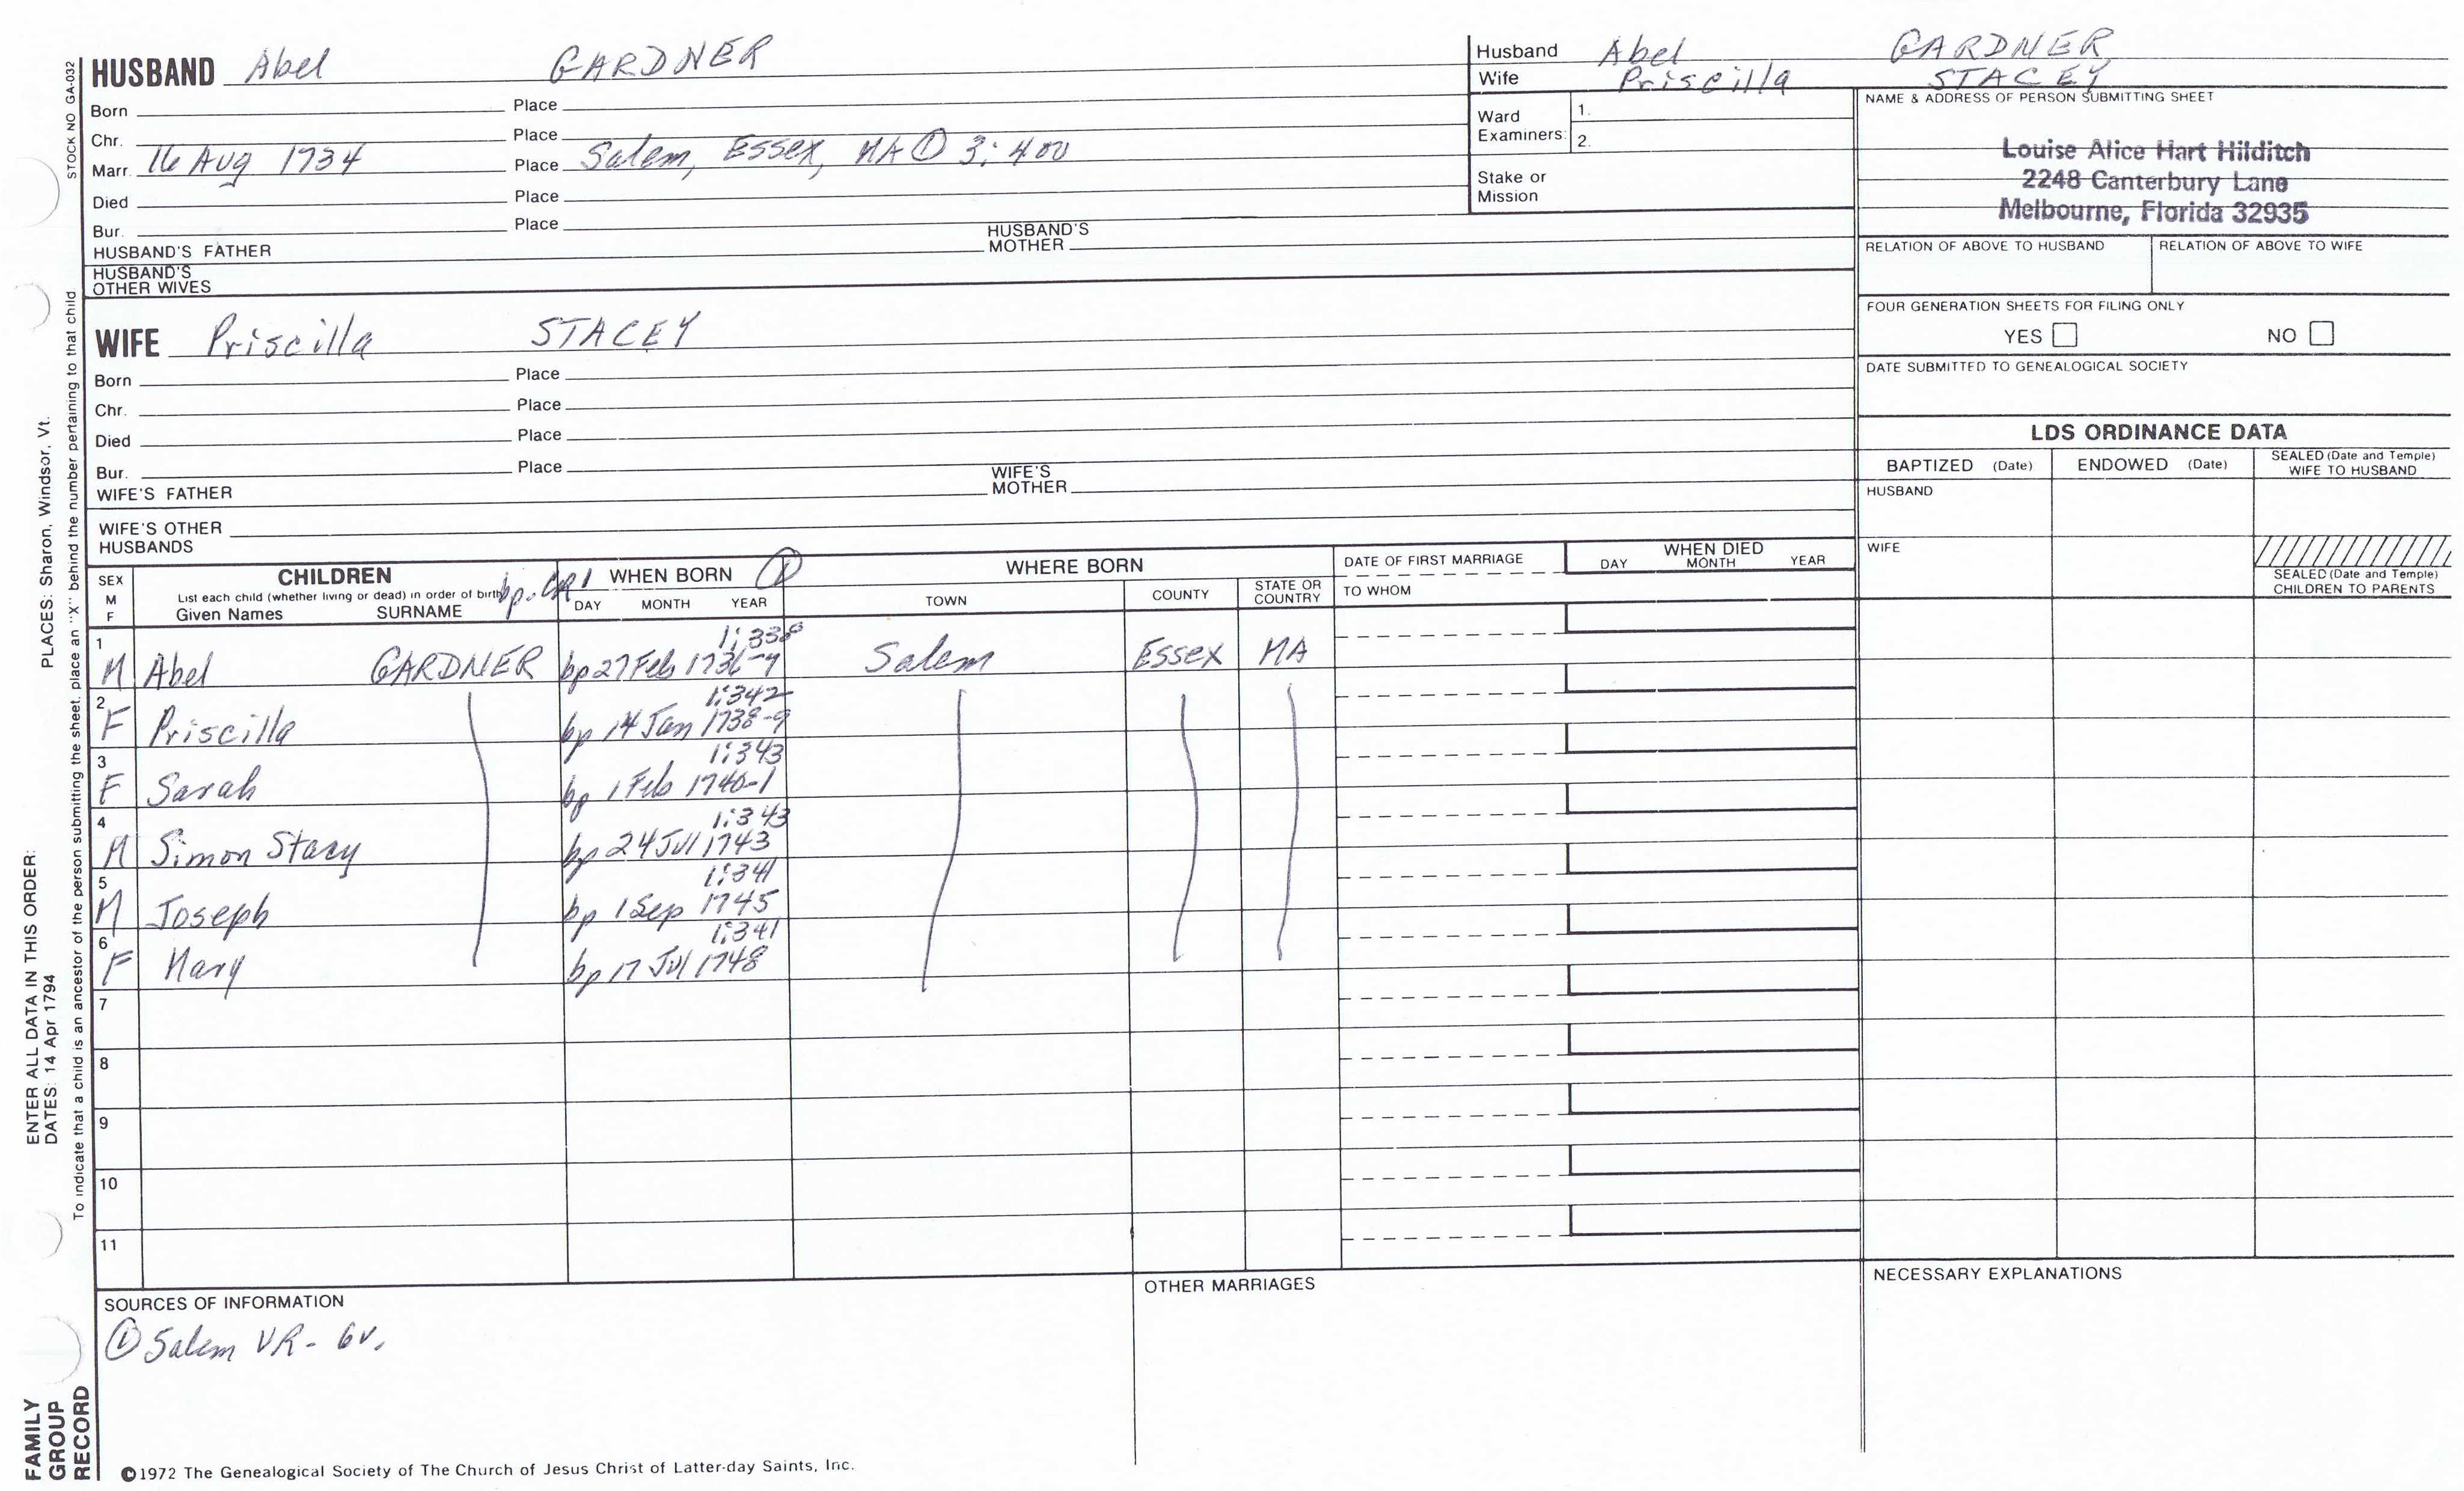 STOCK NO GA-032
HUSBAND Abel GARDNER
Born Place
Chr. Place
Marr. 16 Aug 1734 Place Salem, Essex, MA ① 3:400
Died Place
Bur. Place
HUSBAND'S FATHER HUSBAND'S MOTHER
HUSBAND'S OTHER WIVES
Husband Abel GARDNER
Wife Priscilla STACEY
Ward Examiners: 1.
2.
Stake or Mission
NAME & ADDRESS OF PERSON SUBMITTING SHEET
Louise Alice Hart Hilditch
2248 Canterbury Lane
Melbourne, Florida 32935
RELATION OF ABOVE TO HUSBAND RELATION OF ABOVE TO WIFE
FOUR GENERATION SHEETS FOR FILING ONLY
YES NO
DATE SUBMITTED TO GENEALOGICAL SOCIETY
WIFE Priscilla STACEY
Born Place
Chr. Place
Died Place
Bur. Place
WIFE'S FATHER WIFE'S MOTHER
WIFE'S OTHER HUSBANDS
LDS ORDINANCE DATA
BAPTIZED (Date) ENDOWED (Date) SEALED (Date and Temple) WIFE TO HUSBAND
HUSBAND
WIFE
SEALED (Date and Temple) CHILDREN TO PARENTS
SEX M F
CHILDREN
List each child (whether living or dead) in order of birth
Given Names SURNAME
bp. CR1 WHEN BORN ①
DAY MONTH YEAR
WHERE BORN
TOWN COUNTY STATE OR COUNTRY
DATE OF FIRST MARRIAGE
TO WHOM
WHEN DIED
DAY MONTH YEAR
1 1:338
M Abel GARDNER bp 27 Feb 1736-7 Salem Essex MA
2 1:342
F Priscilla bp 14 Jan 1738-9
3 1:343
F Sarah bp 1 Feb 1740-1
4 1:343
M Simon Stacy bp 24 Jul 1743
5 1:341
M Joseph bp 1 Sep 1745
6 1:341
F Mary bp 17 Jul 1748
7
8
9
10
11
SOURCES OF INFORMATION
① Salem VR - 6v.
OTHER MARRIAGES
NECESSARY EXPLANATIONS
©1972 The Genealogical Society of The Church of Jesus Christ of Latter-day Saints, Inc.
FAMILY GROUP RECORD
ENTER ALL DATA IN THIS ORDER: PLACES: Sharon, Windsor, Vt.
DATES: 14 Apr 1794
To indicate that a child is an ancestor of the person submitting the sheet, place an "X" behind the number pertaining to that child